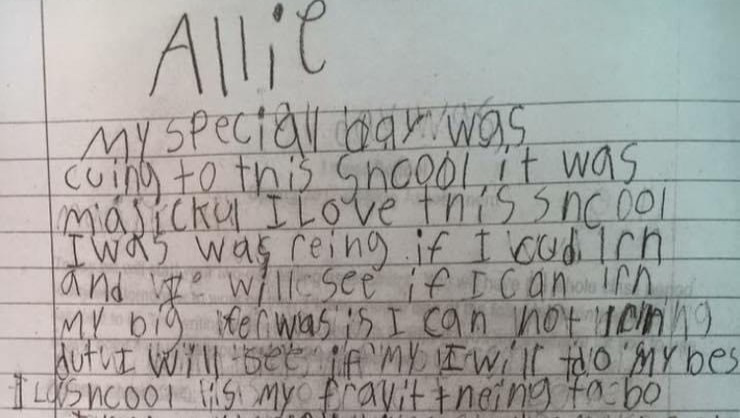 Allie
My speciall day was
cuing to this Shcool, it was
majickul I Love this Shcool
I was was reing if I cud lrn
and we will see if I can lrn
My big was is I can not
but I will see if my I will do my bes
shcool is my fravit theing to bo